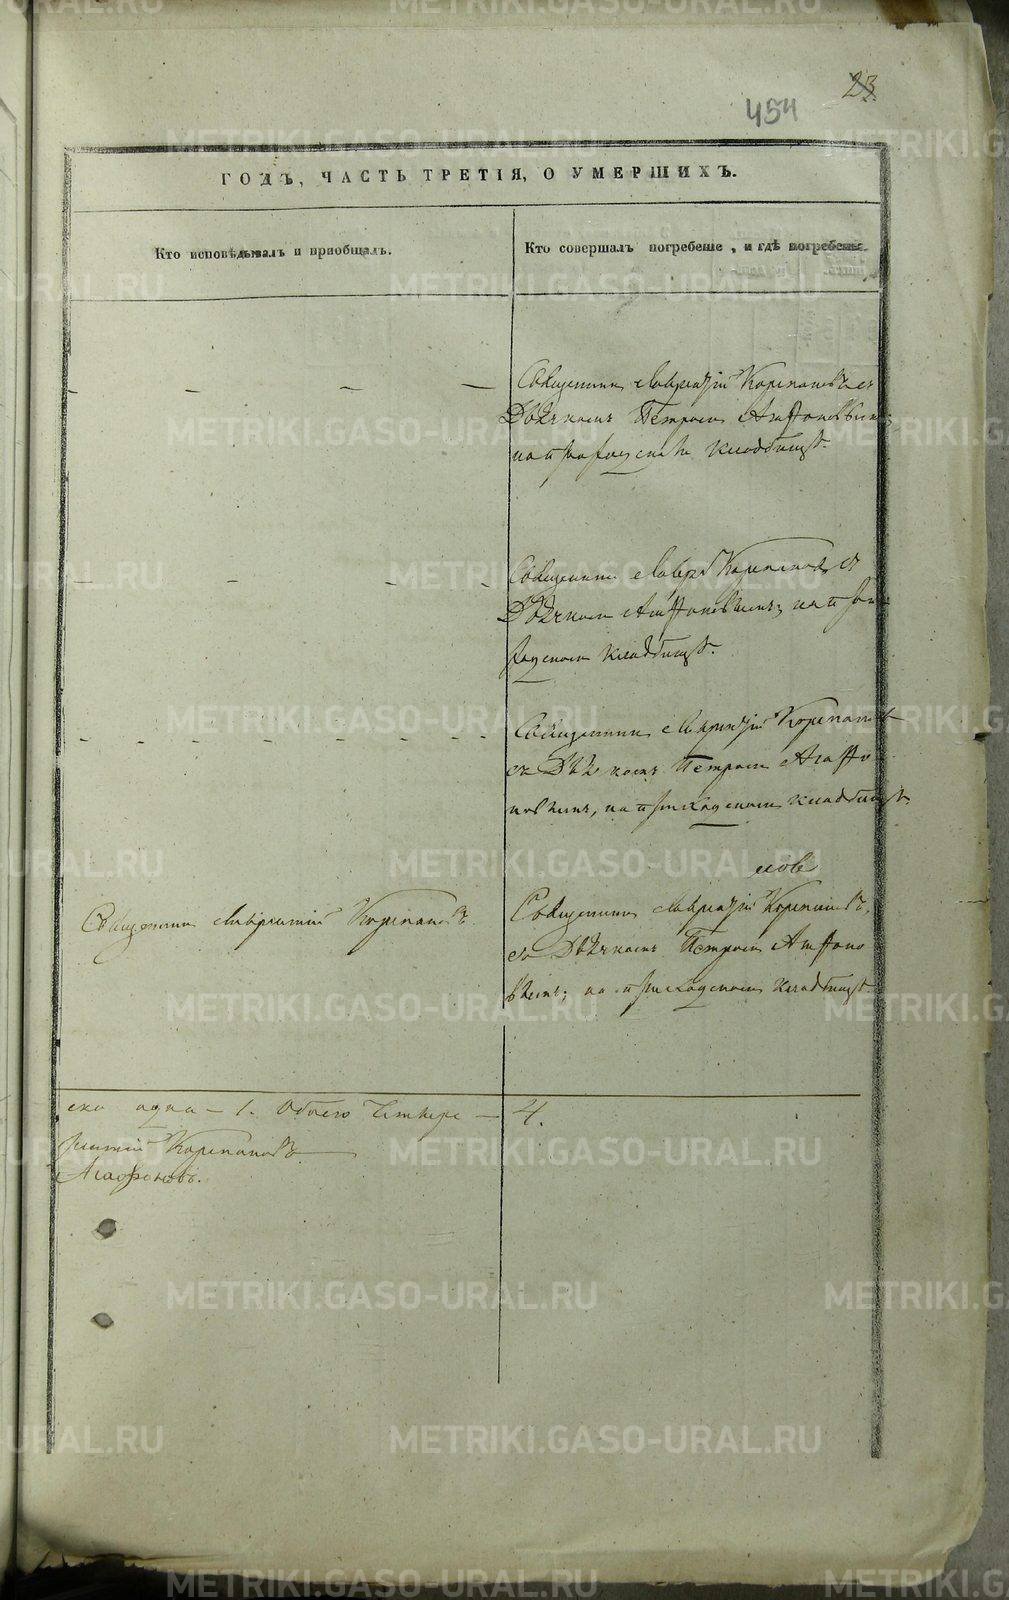 23.
454
ГОДЪ, ЧАСТЬ ТРЕТІЯ, О УМЕРШИХЪ.
Кто исповѣдывалъ и пріобщалъ.
Кто совершалъ погребеніе, и гдѣ погребены.
Священникъ Лаврентій Корепановъ съ
Дьячкомъ Петромъ Агафоновымъ;
на приходскомъ кладбищѣ.
Священникъ Лавр. Корепановъ съ
Дьячкомъ Агафоновымъ; на при-
ходскомъ кладбищѣ.
Священникъ Лаврентій Корепановъ
съ Дьячкомъ Петромъ Агафо
новымъ, на приходскомъ кладбищѣ.
Священникъ Лаврентій Корепановъ
нов
Священникъ Лаврентій Корепановъ,
съ Дьячкомъ Петромъ Агафоно
вымъ; на приходскомъ кладбищѣ.
ска одна – 1. Обоего четыре – 4.
рентій Корепановъ
Агафоновъ.
METRIKI.GASO-URAL.RU